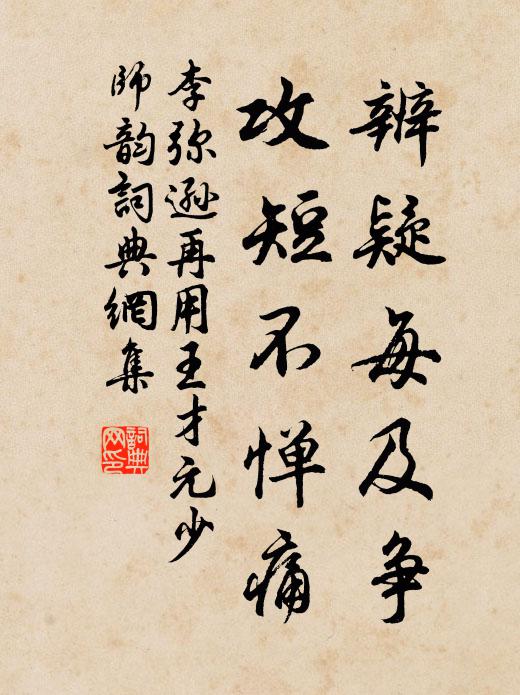 辨疑每及争
攻短不惮痛
李弥逊再用王才元少
師韵詞典網集
詞典网印